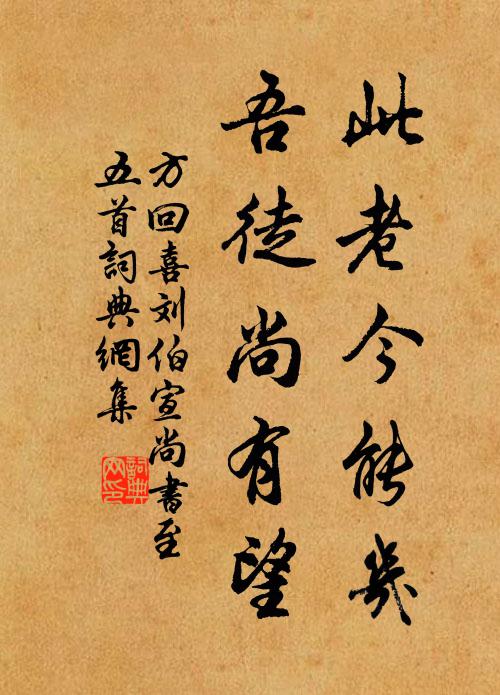 此老今能幾
吾徒尚有望
方回喜刘伯宣尚書至
五首詞典網集
詞典
网印